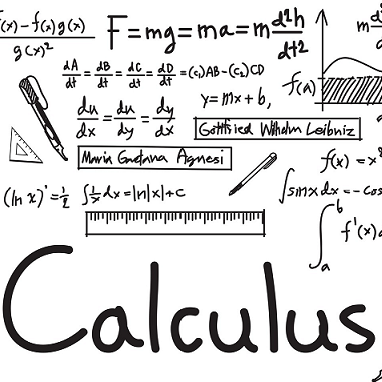 (x) - f(x) g(x)
g(x)²
F = mg = ma = m d²h/dt²
dA/dt = dB/dt = dC/dt = dD/dt = (c₁)AB - (c₂)CD
f(a)
du/dx = du/dy = dy/dx
y = mx + b,
Gottfied Wilhelm Leibniz
Maria Gaetana Agnesi
f(x) = x
(ln x)' = 1/2
∫ 1/x dx = ln|x| + C
∫ sinx dx = -cos
∫ₐᵇ f'(x)
Calculus